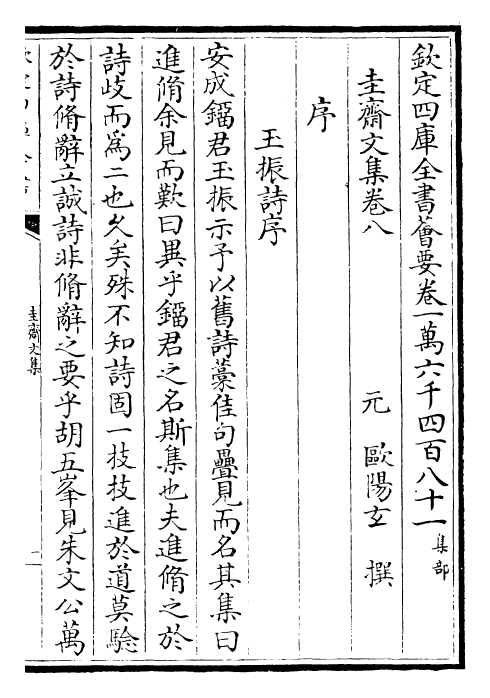 欽定四庫全書薈要卷一萬六千四百八十一 集部
圭齋文集卷八
元 歐陽玄 撰
序
玉振詩序
安成鐂君玉振示予以舊詩藁佳句疊見而名其集曰
進脩余見而歎曰異乎鐂君之名斯集也夫進脩之於
詩歧而為二也久矣殊不知詩固一技技進於道莫騐
於詩脩辭立誠詩非脩辭之要乎胡五峯見朱文公萬
圭齋文集
二